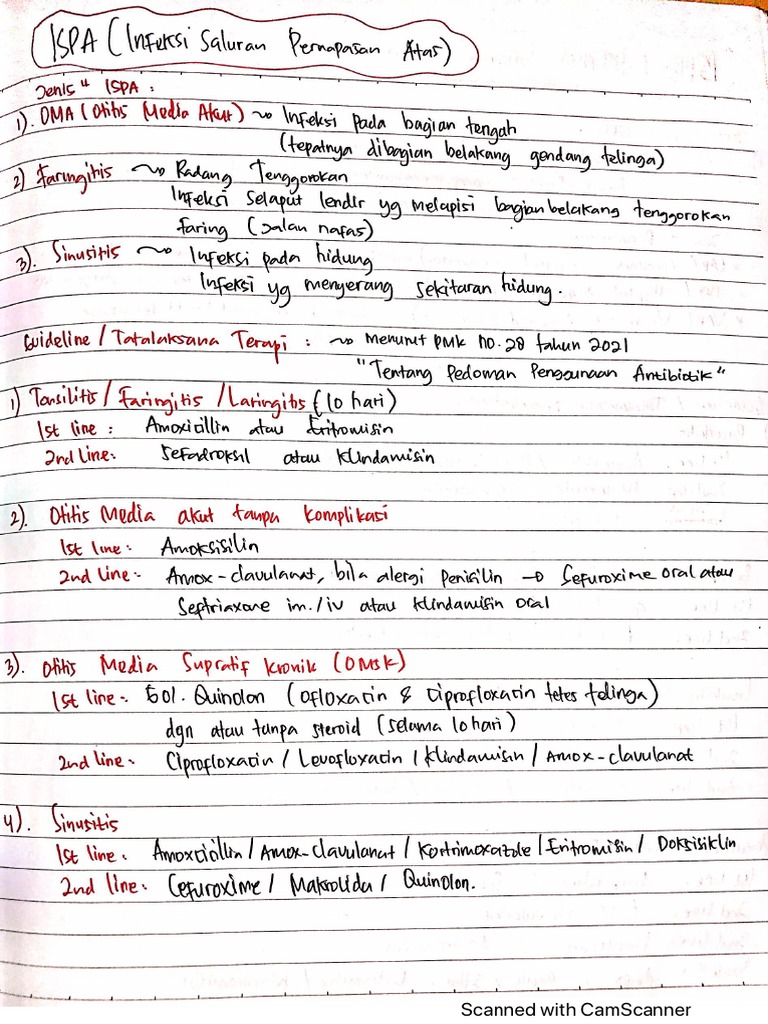 ISPA (Infeksi Saluran Pernapasan Atas)
Jenis" ISPA :
1). OMA (Otitis Media Akut) ~> Infeksi pada bagian tengah
(tepatnya dibagian belakang gendang telinga)
2) Faringitis ~> Radang Tenggorokan
Infeksi Selaput lendir yg melapisi bagian belakang tenggorokan
faring (Jalan nafas)
3). Sinusitis ~> Infeksi pada hidung
Infeksi yg menyerang sekitaran hidung.
Guideline / Tatalaksana Terapi : ~> Menurut PMK no. 28 tahun 2021
"Tentang Pedoman Penggunaan Antibiotik"
1) Tonsilitis / Faringitis / Laringitis (10 hari)
1st line : Amoxicillin atau Eritromisin
2nd Line: Sefadroksil atau Klindamisin
2). Otitis Media akut tanpa komplikasi
1st line : Amoksisilin
2nd Line : Amox-clavulanat, bila alergi Penisilin → Sefuroxime Oral atau
Seftriaxone im./iv atau Klindamisin oral
3). Otitis Media Supratif Kronik (OMSK)
1st line : Gol. Quinolon (Ofloxacin & Ciprofloxacin tetes telinga)
dgn atau tanpa steroid (selama 10 hari)
2nd line : Ciprofloxacin / Levofloxacin / Klindamisin / Amox-clavulanat
4). Sinusitis
1st line : Amoxcicillin / Amox-clavulanat / Kortrimoxazole / Eritromisin / Doksisiklin
2nd line : Cefuroxime / Makrolida / Quinolon.
Scanned with CamScanner